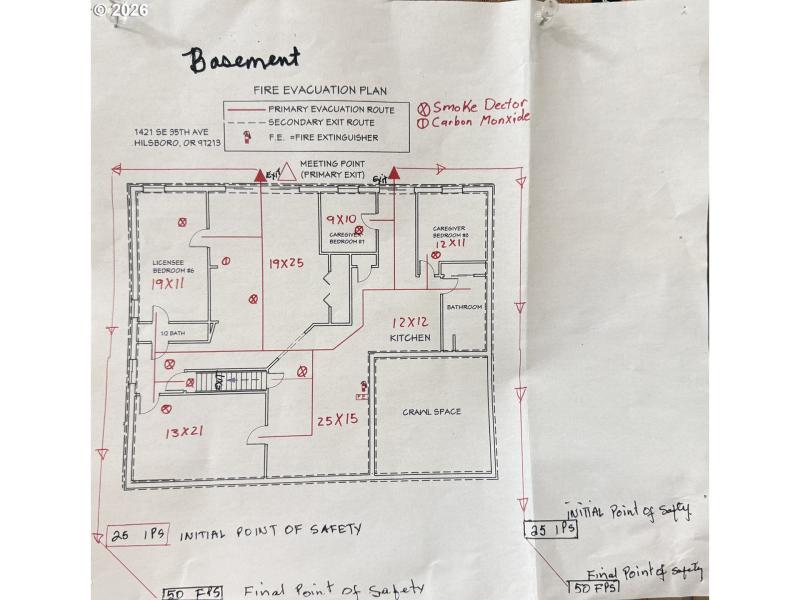 © 2026
Basement
FIRE EVACUATION PLAN
PRIMARY EVACUATION ROUTE
SECONDARY EXIT ROUTE
F.E. =FIRE EXTINGUISHER
Smoke Dector
Carbon Monxide
1421 SE 35TH AVE
HILSBORO, OR 97213
MEETING POINT
(PRIMARY EXIT)
Exit
Exit
9X10
CAREGIVER
BEDROOM #7
CAREGIVER
BEDROOM #8
12X11
LICENSEE
BEDROOM #6
19X11
19X25
BATHROOM
12X12
KITCHEN
1/2 BATH
13X21
25X15
CRAWL SPACE
25 IPS INITIAL POINT OF SAFETY
50 FPS Final Point of Safety
INITIAL Point of Safety
25 IPS
Final Point of Safety
50 FPS